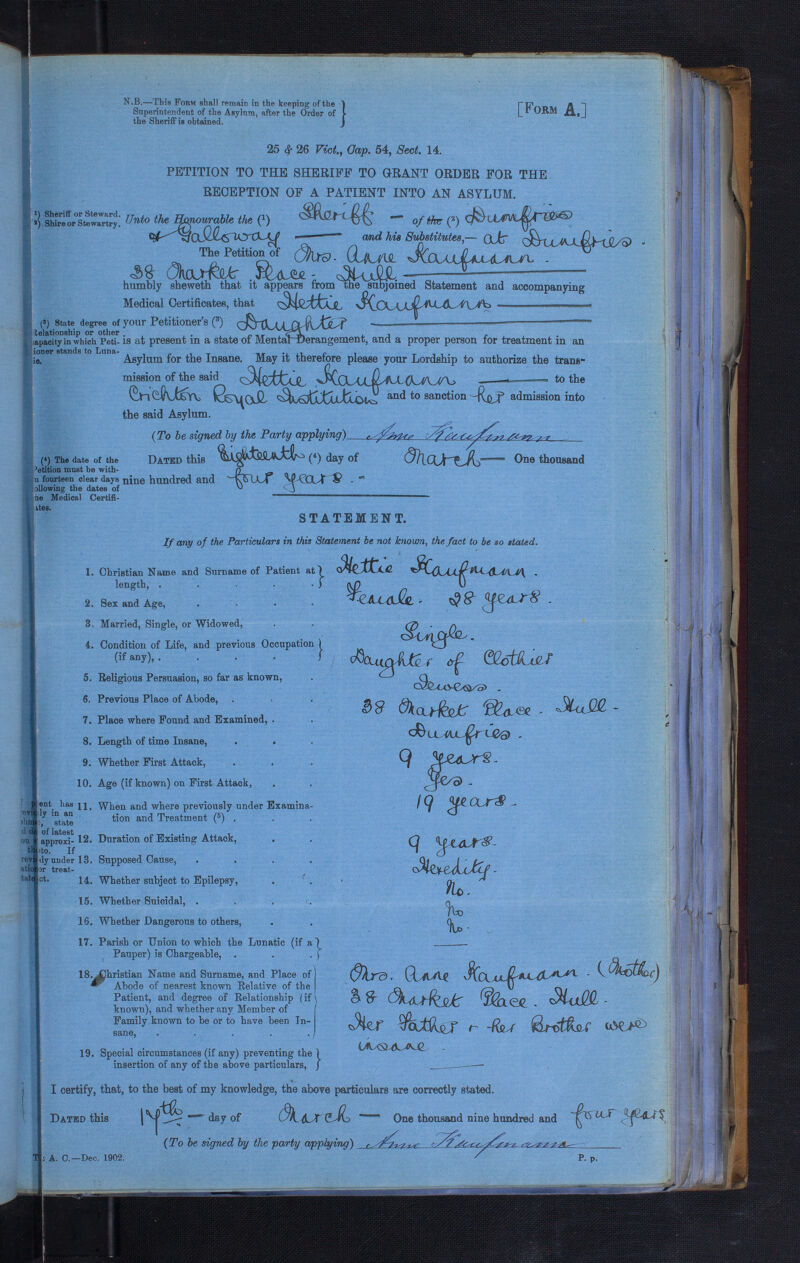 N.B.—This Form shall remain in the keeping of the
Superintendent of the Asylum, after the Order of
the Sheriff is obtained.
[Form A.]
25 & 26 Vict., Cap. 54, Sect. 14.
PETITION TO THE SHERIFF TO GRANT ORDER FOR THE
RECEPTION OF A PATIENT INTO AN ASYLUM.
¹) Sheriff or Steward.
²) Shire or Stewartry.
Unto the Honourable the (¹) Sheriff — of the (²) Dumfries
& Galloway — and his Substitutes,— at Dumfries -
The Petition of Mrs. Anne Kaufmann -
38 Market Place - Hull —
humbly sheweth that it appears from the subjoined Statement and accompanying
Medical Certificates, that Hettie Kaufmann —
(³) State degree of
Relationship or other
capacity in which Peti-
ioner stands to Luna-
ic.
your Petitioner's (³) Daughter —
is at present in a state of Mental Derangement, and a proper person for treatment in an
Asylum for the Insane. May it therefore please your Lordship to authorize the trans-
mission of the said Hettie Kaufmann — to the
Crichton Royal Institution and to sanction Her admission into
the said Asylum.
(To be signed by the Party applying) Anne Kaufmann
(⁴) The date of the
Petition must be with-
n fourteen clear days
ollowing the dates of
ne Medical Certifi-
ates.
Dated this Eighteenth (⁴) day of March — One thousand
nine hundred and four years . -
STATEMENT.
If any of the Particulars in this Statement be not known, the fact to be so stated.
1. Christian Name and Surname of Patient at length, . Hettie Kaufmann .
2. Sex and Age, Female - 28 years .
3. Married, Single, or Widowed, Single.
4. Condition of Life, and previous Occupation (if any), . Daughter of Clothier
5. Religious Persuasion, so far as known, Jewess .
6. Previous Place of Abode, . 38 Market Place . Hull -
7. Place where Found and Examined, . Dumfries .
8. Length of time Insane, 9 years.
9. Whether First Attack, Yes .
10. Age (if known) on First Attack, 19 years .
11. When and where previously under Examina-
tion and Treatment (⁵) .
12. Duration of Existing Attack, 9 years.
13. Supposed Cause, Heredity.
14. Whether subject to Epilepsy, No.
15. Whether Suicidal, . No
16. Whether Dangerous to others, No.
17. Parish or Union to which the Lunatic (if a
Pauper) is Chargeable, . —
18. Christian Name and Surname, and Place of
Abode of nearest known Relative of the
Patient, and degree of Relationship (if
known), and whether any Member of
Family known to be or to have been In-
sane,
Mrs. Anne Kaufmann . (Mother)
38 Market Place . Hull -
Her Father & Her Brother were
insane .
19. Special circumstances (if any) preventing the
insertion of any of the above particulars, —
I certify, that, to the best of my knowledge, the above particulars are correctly stated.
Dated this 17th — day of March — One thousand nine hundred and four years
(To be signed by the party applying) Anne Kaufmann
A. C.—Dec. 1902.
P. p.